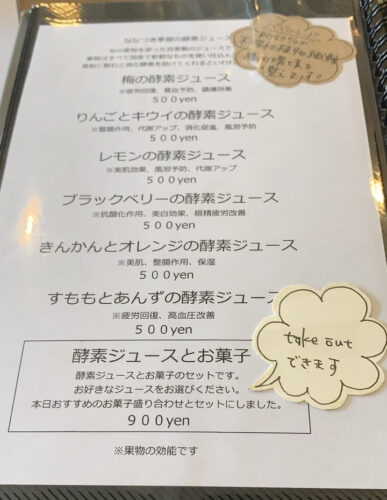 ななつき季節の酵素ジュース
旬の果物を使った自家製のジュースで
果物はすべて国産で新鮮なものを使い仕込ん
食前に飲むと消化酵素を助けてくれるといわれ
梅の酵素ジュース
※疲労回復、貧血予防、鎮痛効果
500yen
りんごとキウイの酵素ジュース
※整腸作用、代謝アップ、消化促進、風邪予防
500yen
レモンの酵素ジュース
※美肌効果、風邪予防、代謝アップ
500yen
ブラックベリーの酵素ジュース
※抗酸化作用、美白効果、眼精疲労改善
500yen
きんかんとオレンジの酵素ジュース
※美肌、整腸作用、保湿
500yen
すももとあんずの酵素ジュース
※疲労回復、高血圧改善
500yen
take out
できます
酵素ジュースとお菓子
酵素ジュースとお菓子のセットです。
お好きなジュースをお選びください。
本日おすすめのお菓子盛り合わせとセットにしました。
900yen
※果物の効能です